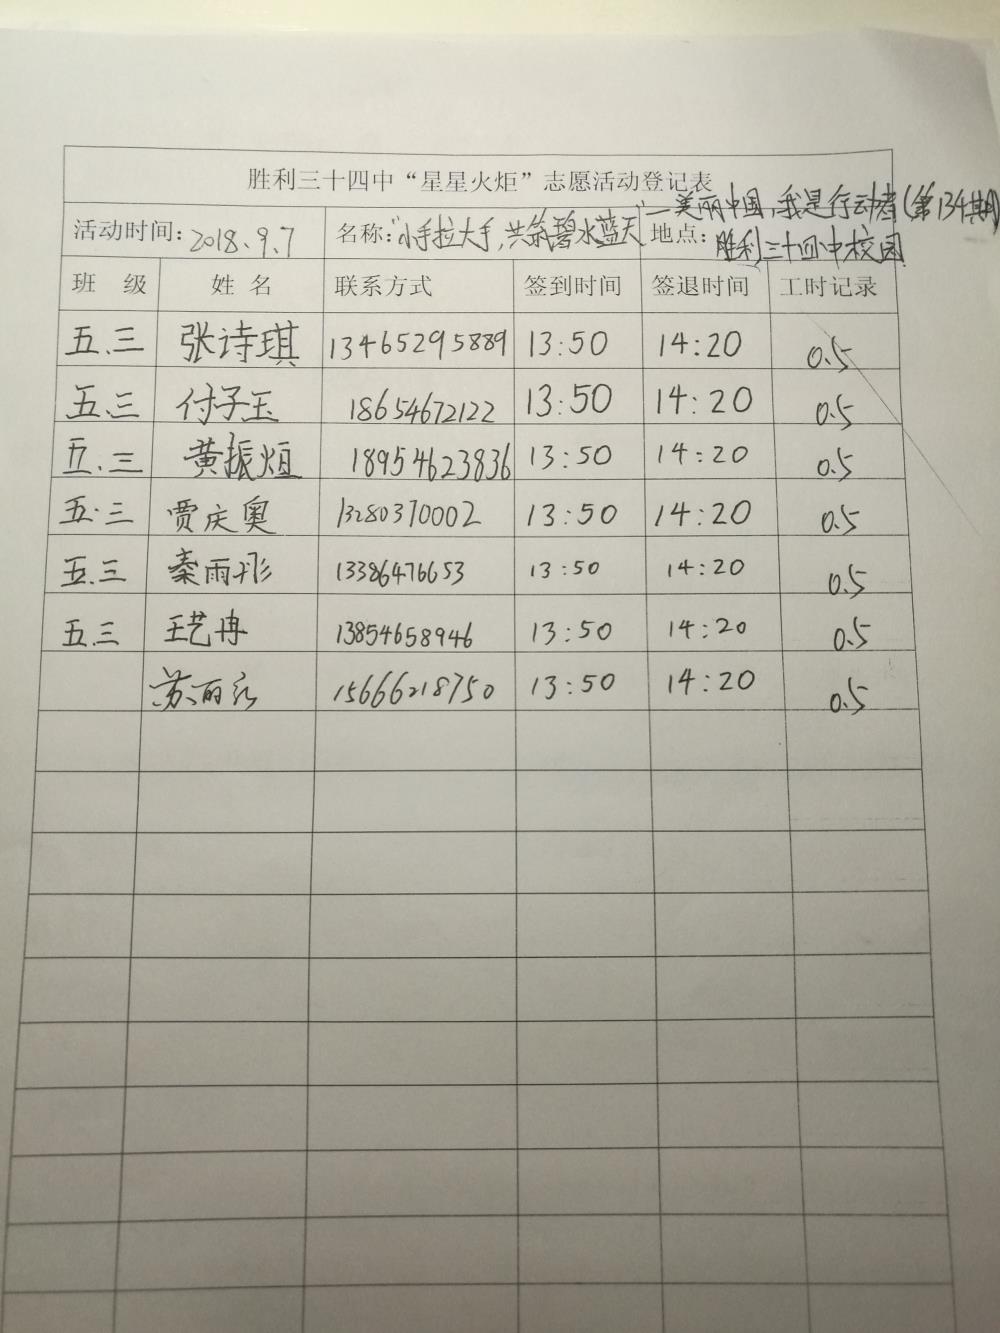 胜利三十四中“星星火炬”志愿活动登记表
活动时间：2018.9.7 名称：“小手拉大手，共筑碧水蓝天”—美丽中国，我是行动者（第134期） 地点：胜利三十四中校园
班 级 姓 名 联系方式 签到时间 签退时间 工时记录
五.三 张诗琪 13465295889 13:50 14:20 0.5
五.三 付子玉 18654672122 13:50 14:20 0.5
五.三 黄振烜 18954623836 13:50 14:20 0.5
五.三 贾庆奥 13280370002 13:50 14:20 0.5
五.三 秦雨彤 13386476653 13:50 14:20 0.5
五.三 王艺冉 13854658946 13:50 14:20 0.5
苏丽 15666218750 13:50 14:20 0.5